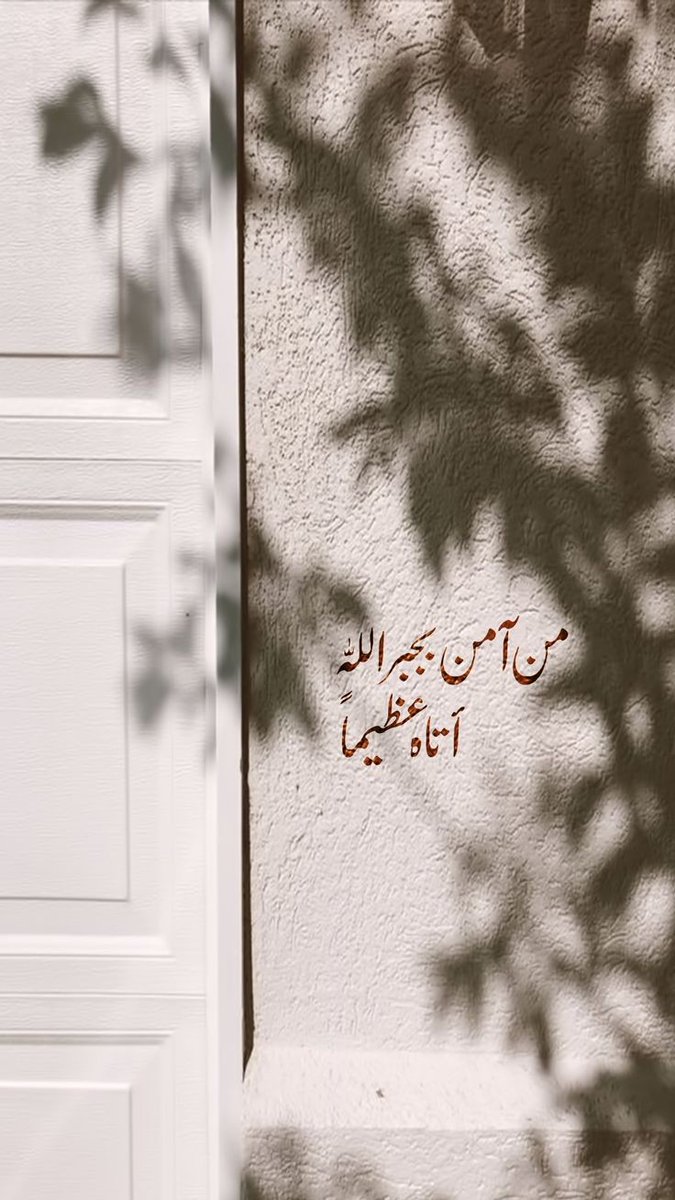 من آمن بجبر الله
أتاه عظيماً